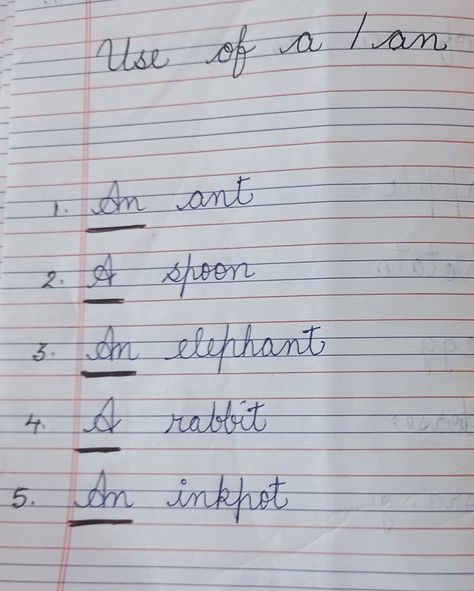 Use of a / an
1. An ant
2. A spoon
3. An elephant
4. A rabbit
5. An inkpot